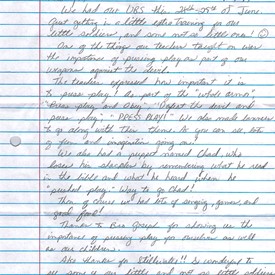 We had our DRS this 24th-28th of June.
Just getting in a little extra training for our
little soldiers, and some not so little ones! ☺
One of the things our teachers taught on was
the importance of pressing play as part of our
weapons against the devil.
The teachers expressed how important it is
to press play! As part of the "whole armor",
"Press play and Obey", "Resist the devil and
press play", "PRESS PLAY!" We also made banners
to go along with their theme. As you can see, lots
of fun and imagination going on!
We also had a puppet named Chad, who
learns by remembering what he read
in the bible and what he heard when he
"pushed play." Way to go Chad!
Then of course we had lots of singing, games, and
good food!
Thanks to Bro Joseph for showing us the
importance of pressing play for ourselves as well
as our children.
Also thanks for Stillwaters!! Its wonderful to
see some of our little and not so little soldiers